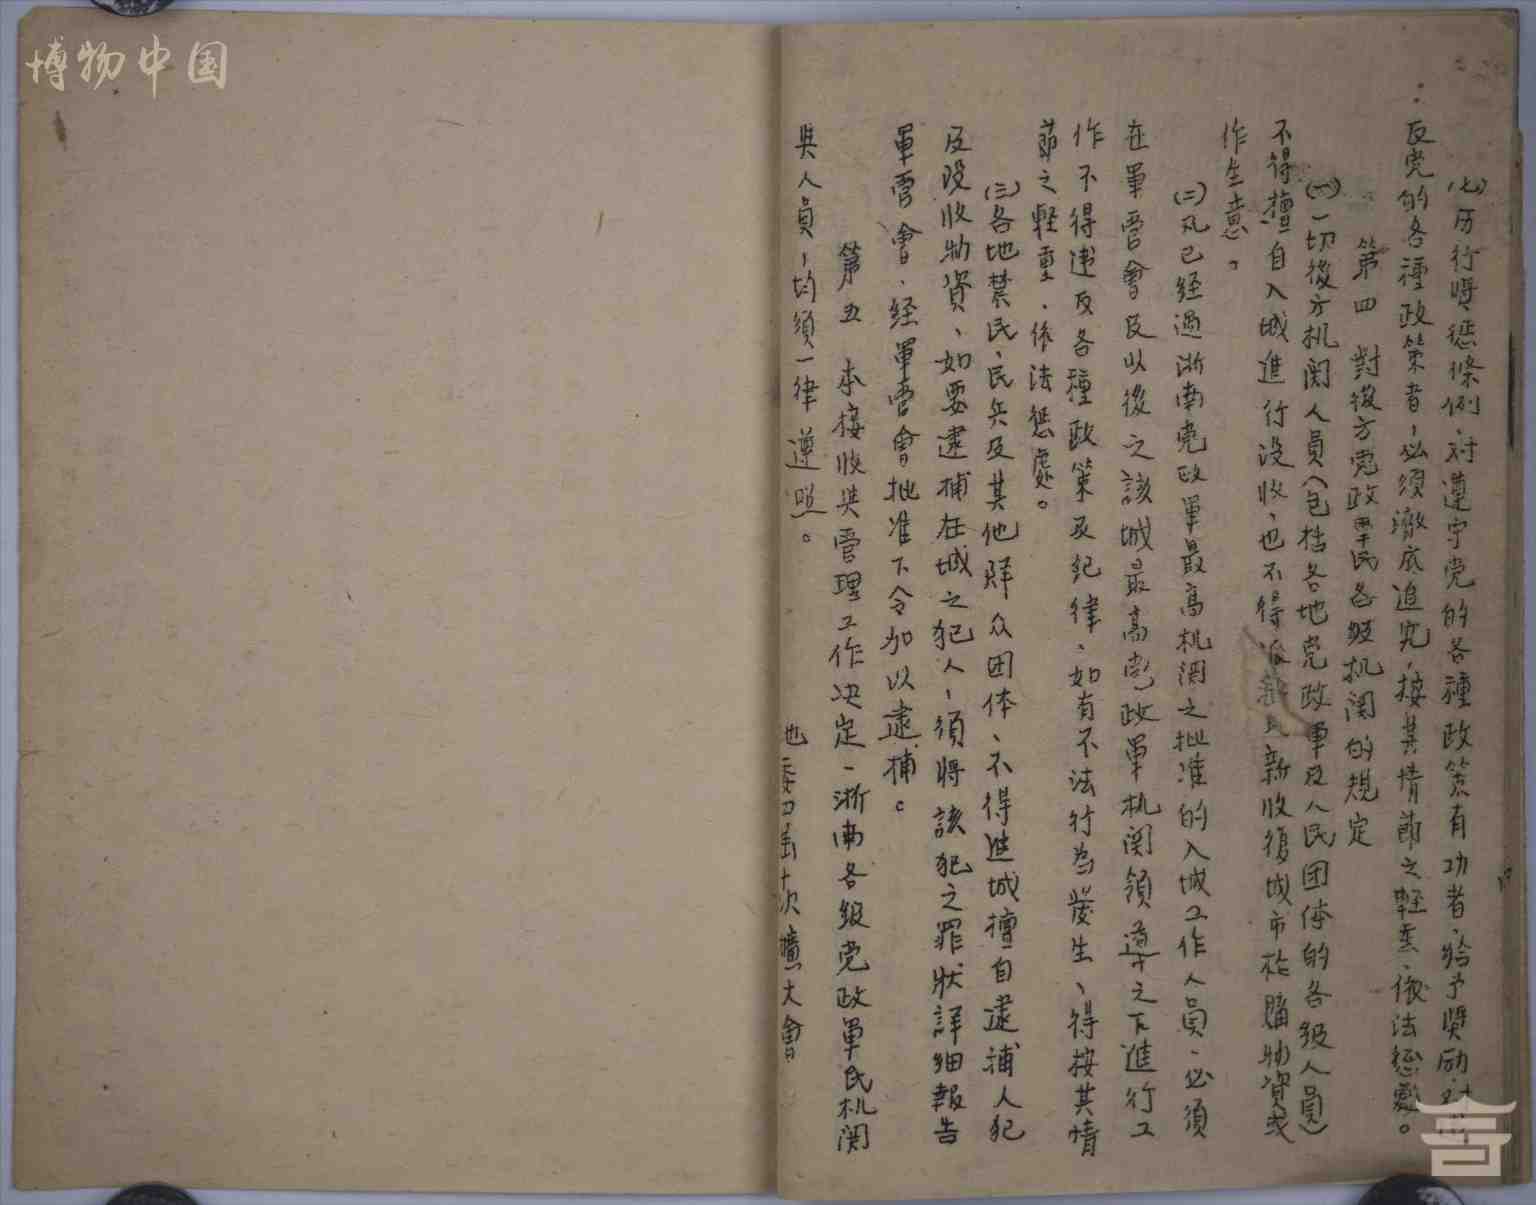 博物中国
(七)历行奬惩條例、对遵守党的各種政策有功者、给予奬励、对
反党的各種政策者,必须澈底追究,按其情節之輕重、依法惩處。
第四 對後方党政軍民各级机関的規定
(一)一切後方机関人員(包括各地党政軍及人民团体的各级人員)
不得擅自入城進行没收、也不得派 新收復城市 購物資或
作生意。
(二)凡已经過浙南党政軍最高机関之批准的入城工作人員、必须
在軍管會及以後之該城最高党政軍机関領導之下進行工
作不得違反各種政策及纪律、如有不法行為發生、得按其情
節之輕重、依法惩處。
(三)各地禁民、民兵及其他群众团体、不得進城擅自逮捕人犯
及没收物資、如要逮捕在城之犯人,須將該犯之罪狀詳细報告
軍管會、经軍管會批准下令加以逮捕。
第五 本接收與管理工作决定、浙南各级党政軍民机関
與人員,均須一律遵照。
地委 十次擴大會